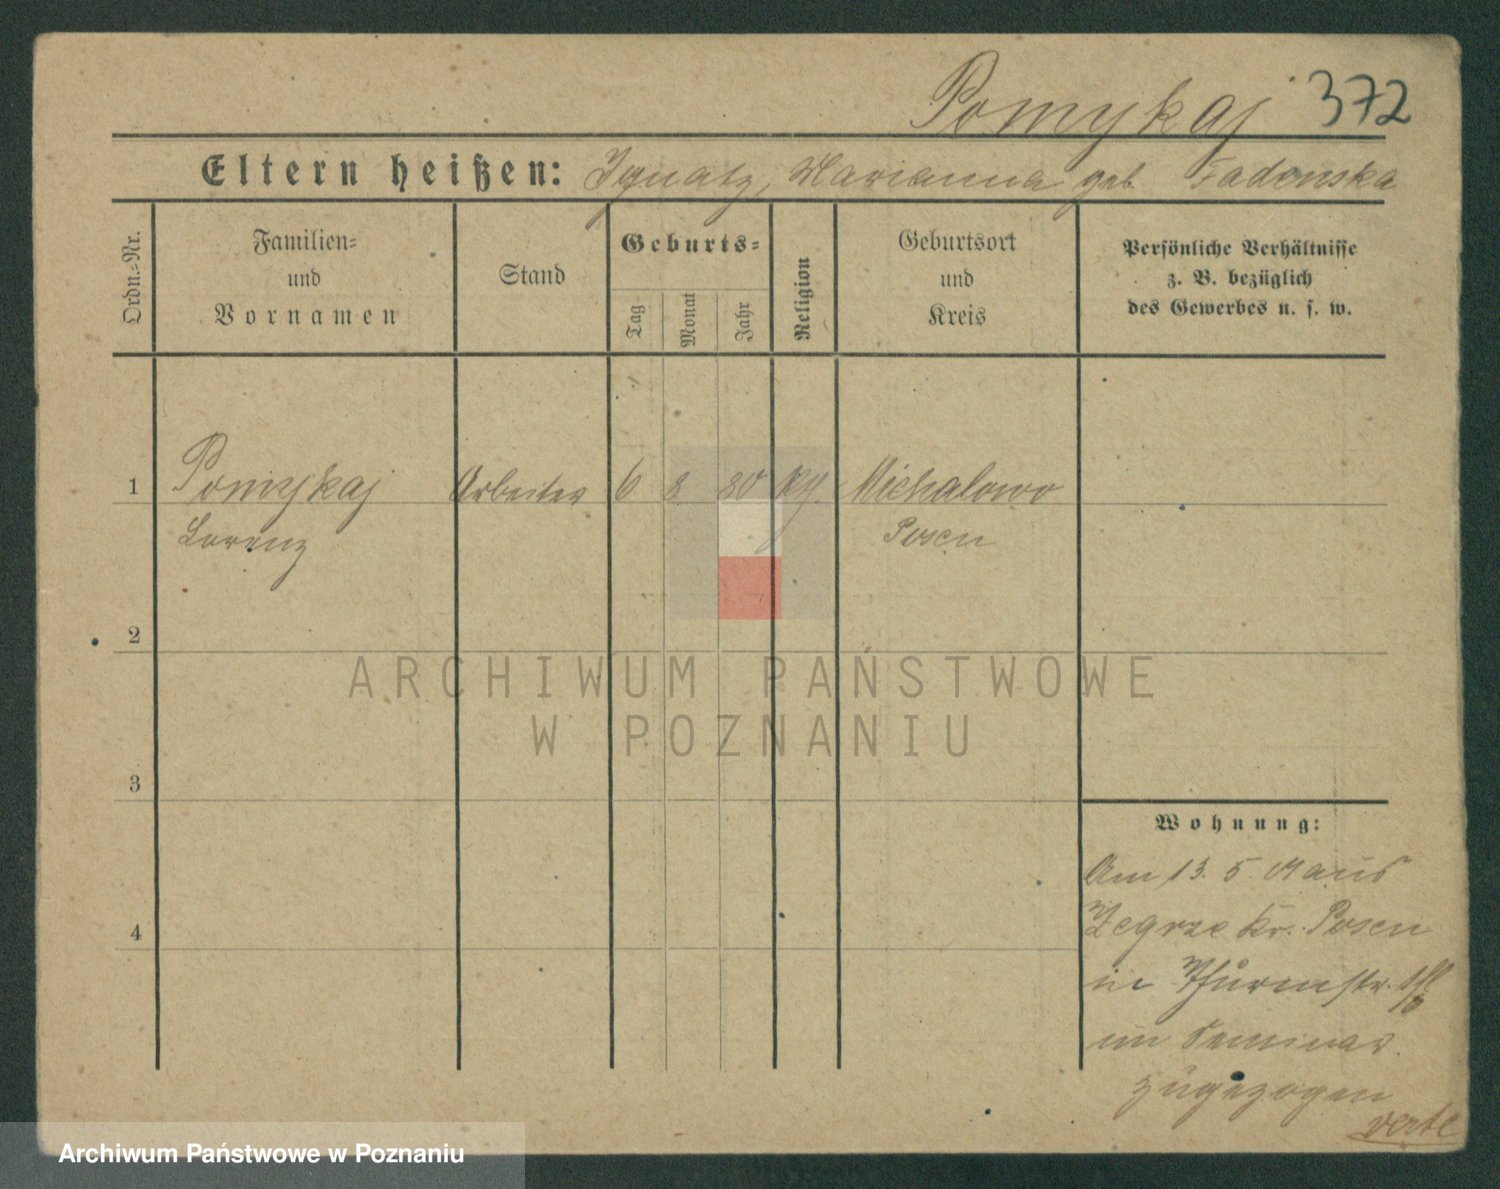 Pomykaj 372
Eltern heißen: Ignatz, Marianna geb. Fadonska
Ordn.-Nr.
Familien-
und
Vornamen
Stand
Geburts-
Tag
Monat
Jahr
Religion
Geburtsort
und
Kreis
Persönliche Verhältnisse
z. B. bezüglich
des Gewerbes u. s. w.
1 Pomykaj Arbeiter 6 8 80 Michalowo
Lorenz Posen
2
3
4
Wohnung:
Am 13. 5. 01 aus
Zegrze Kr. Posen
in Thurmstr.
im Seminar
zugezogen
verte
ARCHIWUM PAŃSTWOWE
W POZNANIU
Archiwum Państwowe w Poznaniu